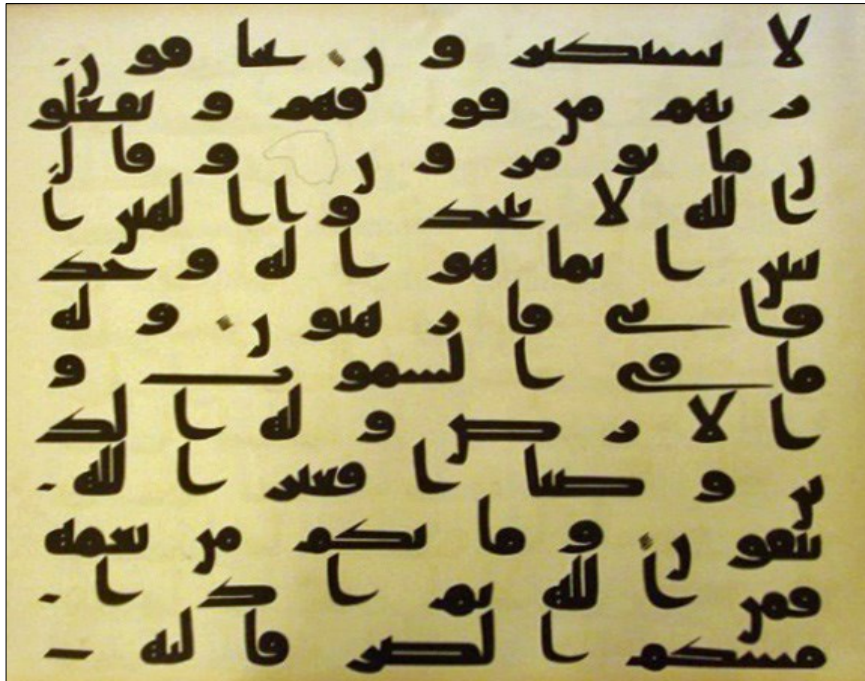 لا يستكبرون يخافون
ربهم من فوقهم ويفعلو
ن ما يؤمرون وقال
الله لا تتخذوا الهين ا
ثنين انما هو اله وحد
فايى فارهبون وله
ما فى السموت و
الارض وله الد
ين وصبا افغير الله
تتقون وما بكم من نعمه
فمن الله ثم اذا
مسكم الضر فاليه